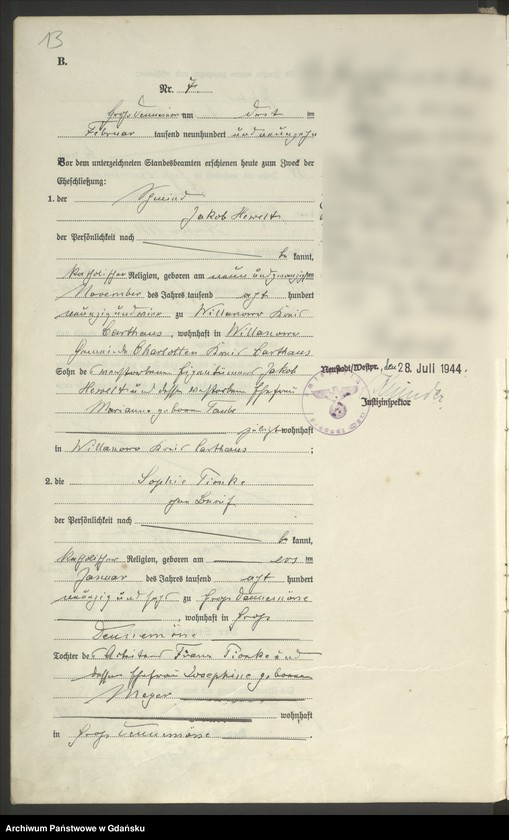 13
B.
Nr. 7
am drei ten
Februar tausend neunhundert und neunzehn
Vor dem unterzeichneten Standesbeamten erschienen heute zum Zweck der
Eheschließung:
1. der
Jakob Hewelt
der Persönlichkeit nach
be kannt,
katholischer Religion, geboren am neun und zwanzigsten
November des Jahres tausend acht hundert
neunzig und vier zu Willanowo Kreis
Carthaus, wohnhaft in Willanowo
Gemeinde Charlotten Kreis Carthaus
Sohn des verstorbenen Eigentümers Jakob
Hewelt und dessen verstorbenen Ehefrau
Marianne geborene
zuletzt wohnhaft
in Willanowo Kreis Carthaus ;
Neustadt/Westpr., den 28. Juli 1944.
Justizinspektor
2. die Sophie Tionke
ohne Beruf
der Persönlichkeit nach
be kannt,
katholischer Religion, geboren am ten
Januar des Jahres tausend acht hundert
neunzig und zu Groß Dennemörse
, wohnhaft in Groß
Dennemörse
Tochter des Arbeiters Franz Tionke und
dessen Ehefrau Josephine geborene
Meyer
wohnhaft
in Groß Dennemörse .
Archiwum Państwowe w Gdańsku